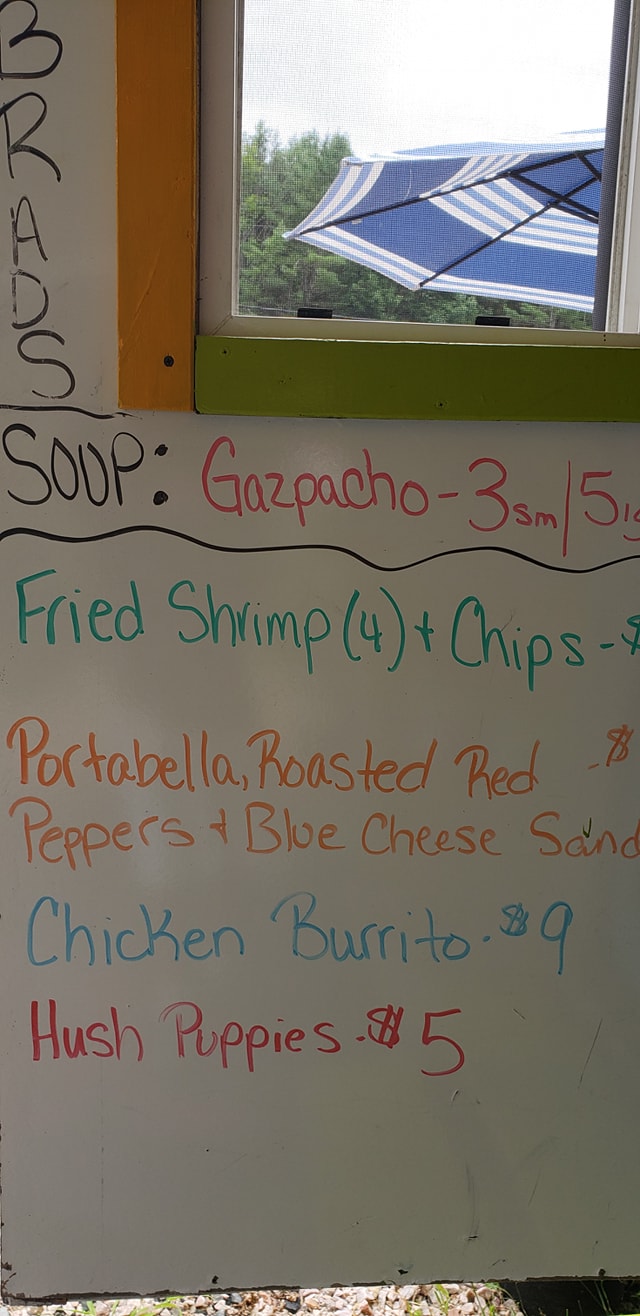 BRADS
SOUP: Gazpacho - 3sm/5
Fried Shrimp (4) + Chips - $
Portabella, Roasted Red - $
Peppers + Blue Cheese Sand
Chicken Burrito - $9
Hush Puppies - $5